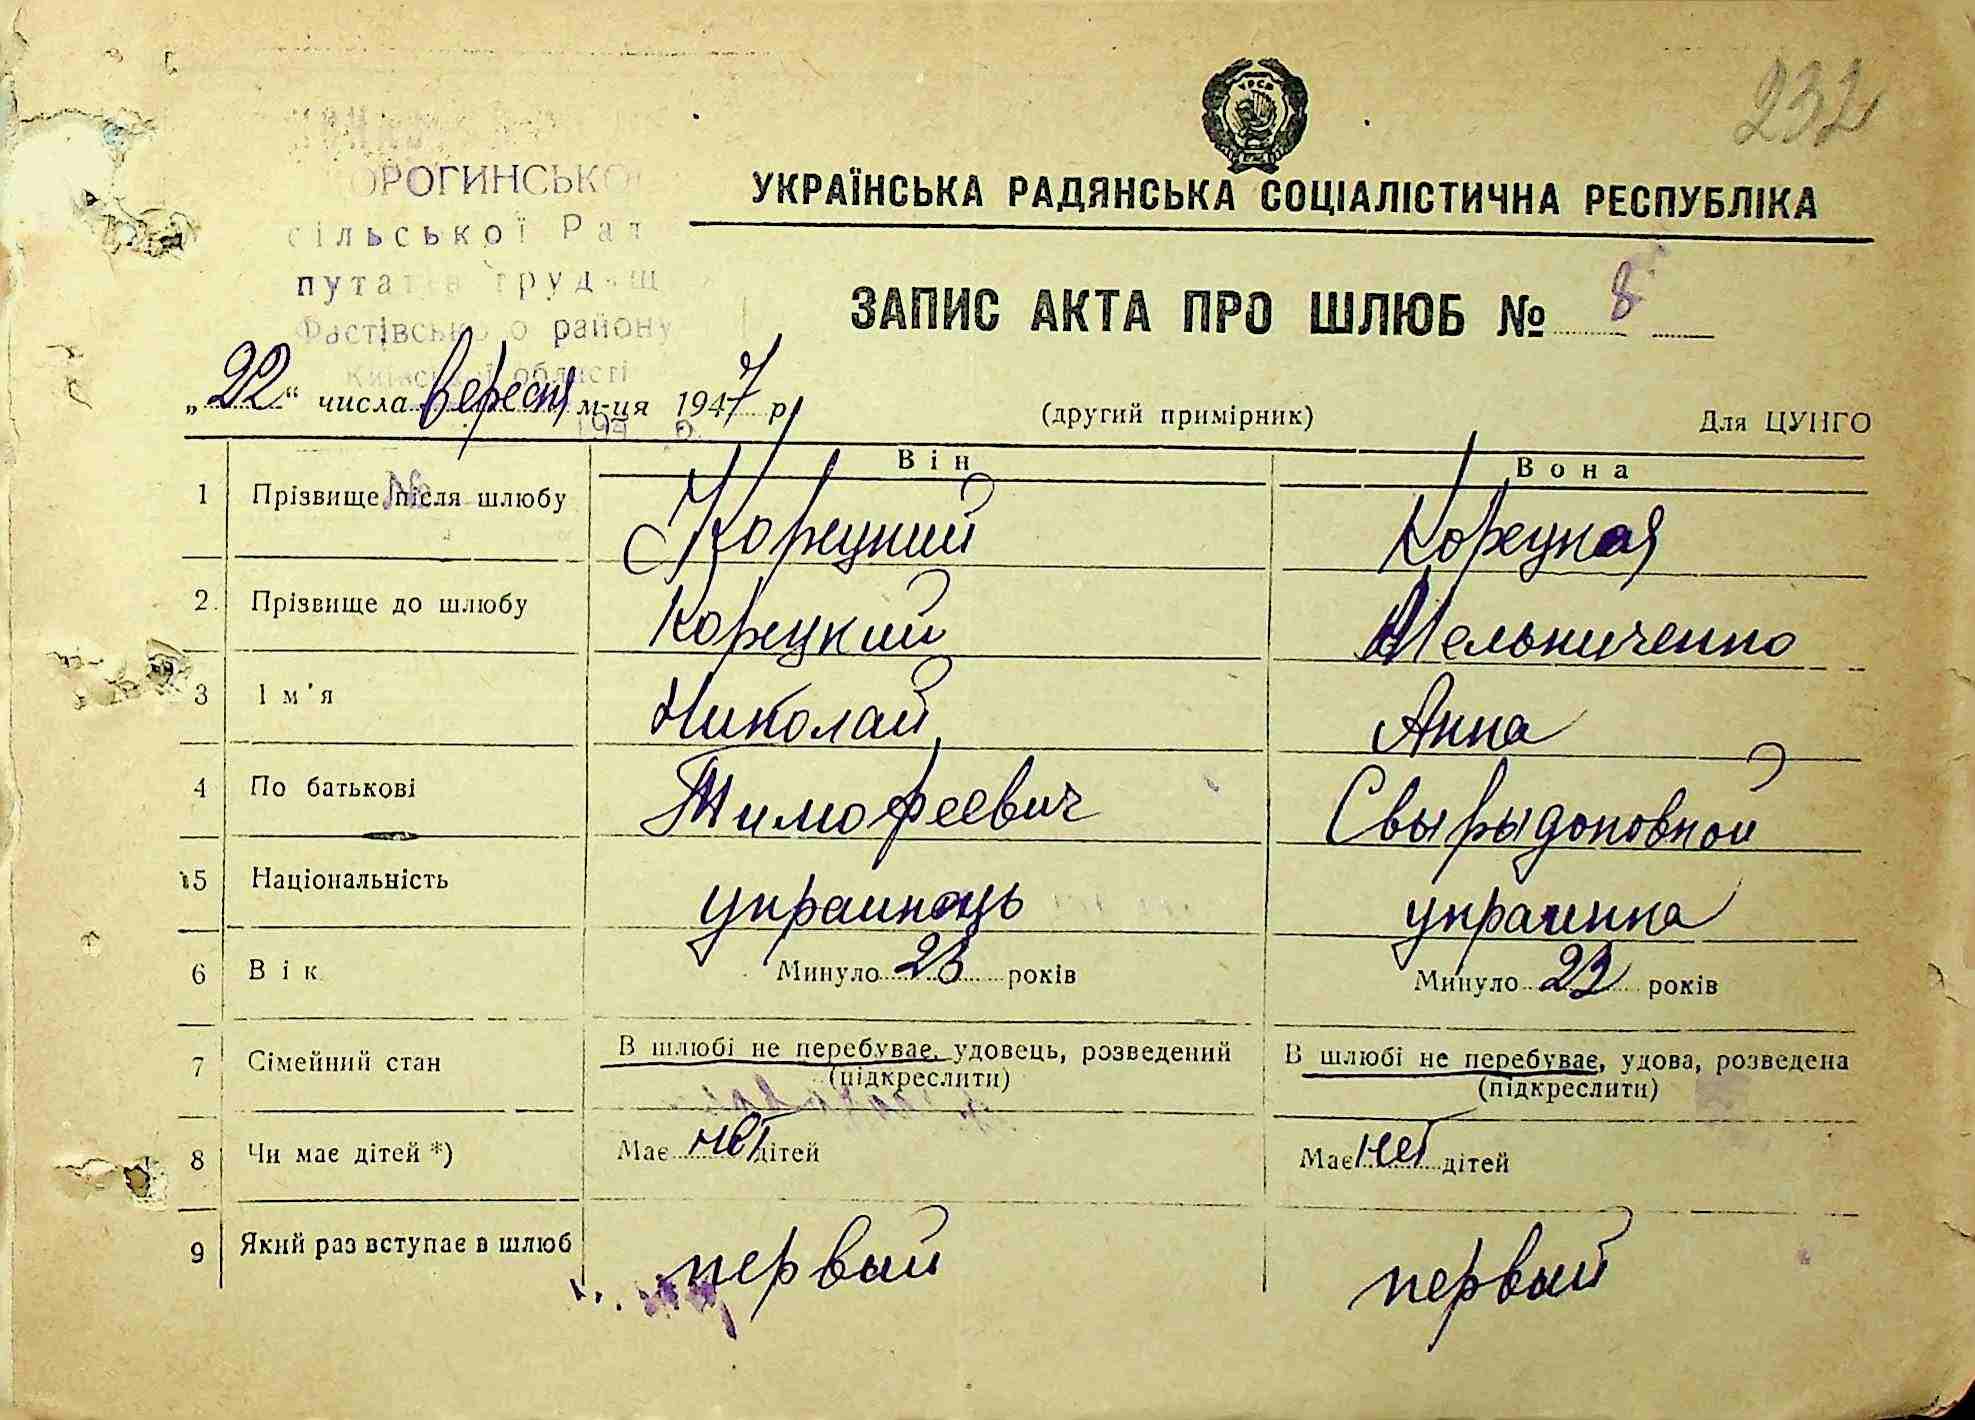 232
УРСР
УКРАЇНСЬКА РАДЯНСЬКА СОЦІАЛІСТИЧНА РЕСПУБЛІКА
ОРОГИНСЬКО
сільської Рад
путатів трудящ
Фастівського району
Київської області
194 р.
№
ЗАПИС АКТА ПРО ШЛЮБ № 8
„22“ числа вересня м-ця 1947 р.
(другий примірник)
Для ЦУНГО
Він Вона
1 Прізвище після шлюбу Корецкий Корецкая
2. Прізвище до шлюбу Корецкий Мельниченко
3 Ім'я Николай Анна
4 По батькові Тимофеевич Свырыдоновной
5 Національність украинець украинка
6 Вік Минуло 23 років Минуло 23 років
7 Сімейний стан В шлюбі не перебуває, удовець, розведений В шлюбі не перебуває, удова, розведена
(підкреслити) (підкреслити)
8 Чи має дітей *) Має нет дітей Має нет дітей
9 Який раз вступає в шлюб первый первый